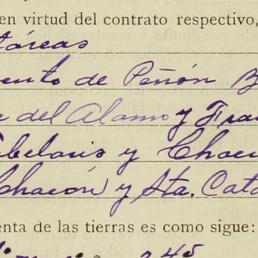 en virtud del contrato respectivo,
táreas
ento de Peñón B
del Alamo y Fra
belaris y Chac
Chacón y Sta. Cata
enta de las tierras es como sigue:
245